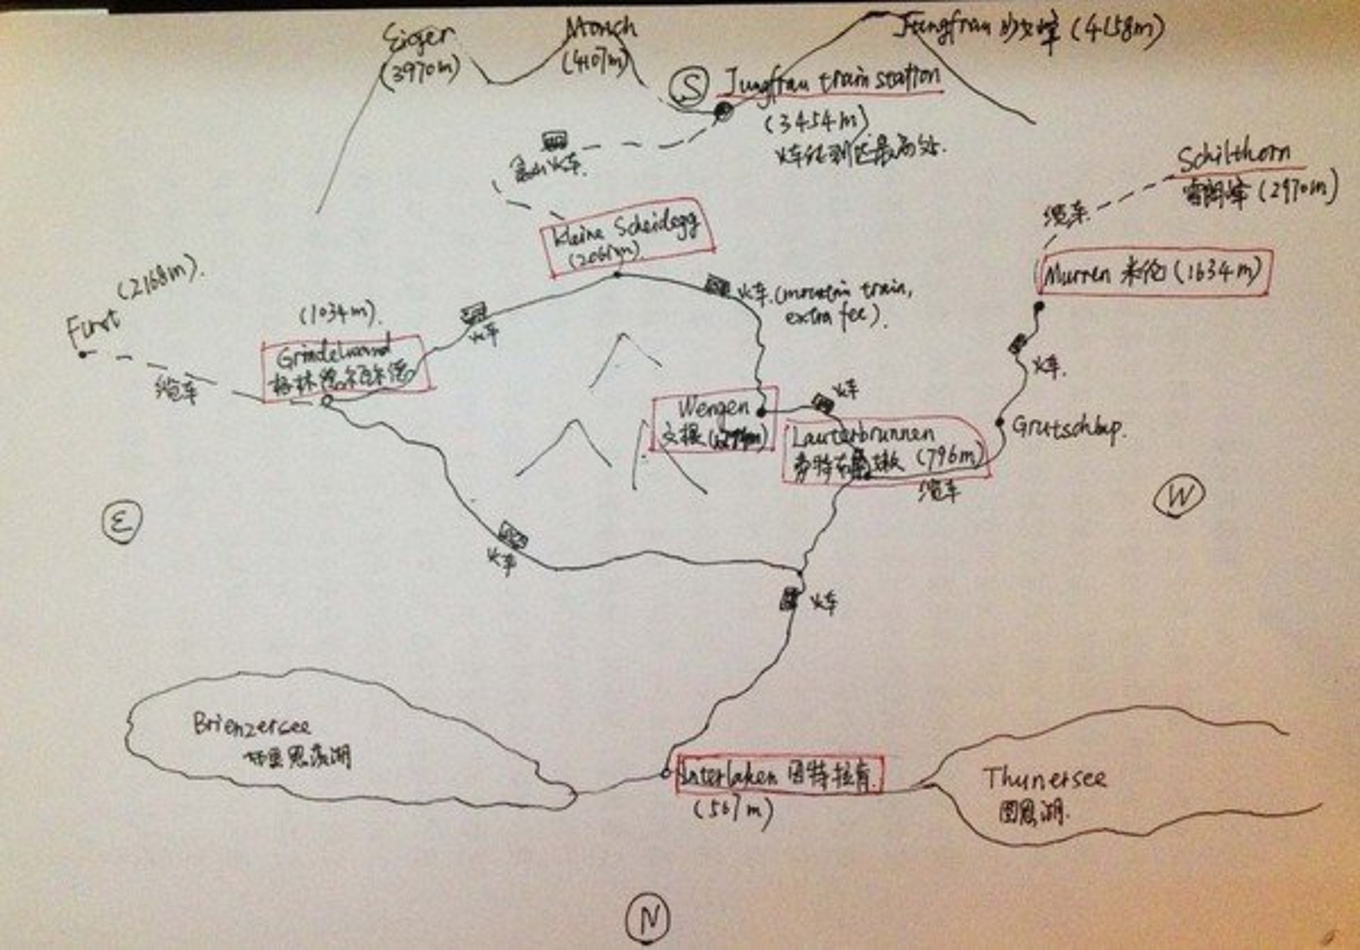 Eiger
(3970m)
Monch
(4107m)
Jungfrau 少女峰 (4158m)
S
Jungfrau train station
(3454m)
火车能到达最高处.
登山火车.
Schilthorn
雪朗峰 (2970m)
缆车.
Kleine Scheidegg
(2061m).
Murren 米伦 (1634m)
火车. (mountain train,
extra fee).
(2168m).
First
缆车
(1034m).
Grindelwand
格林德尔瓦尔德
火车
火车.
Wengen
文根
火车
Lauterbrunnen
(796m)
Grutschlap.
缆车
E
W
火车
火车
Brienzersee
Interlaken 因特拉肯.
(567m)
Thunersee
图恩湖.
N